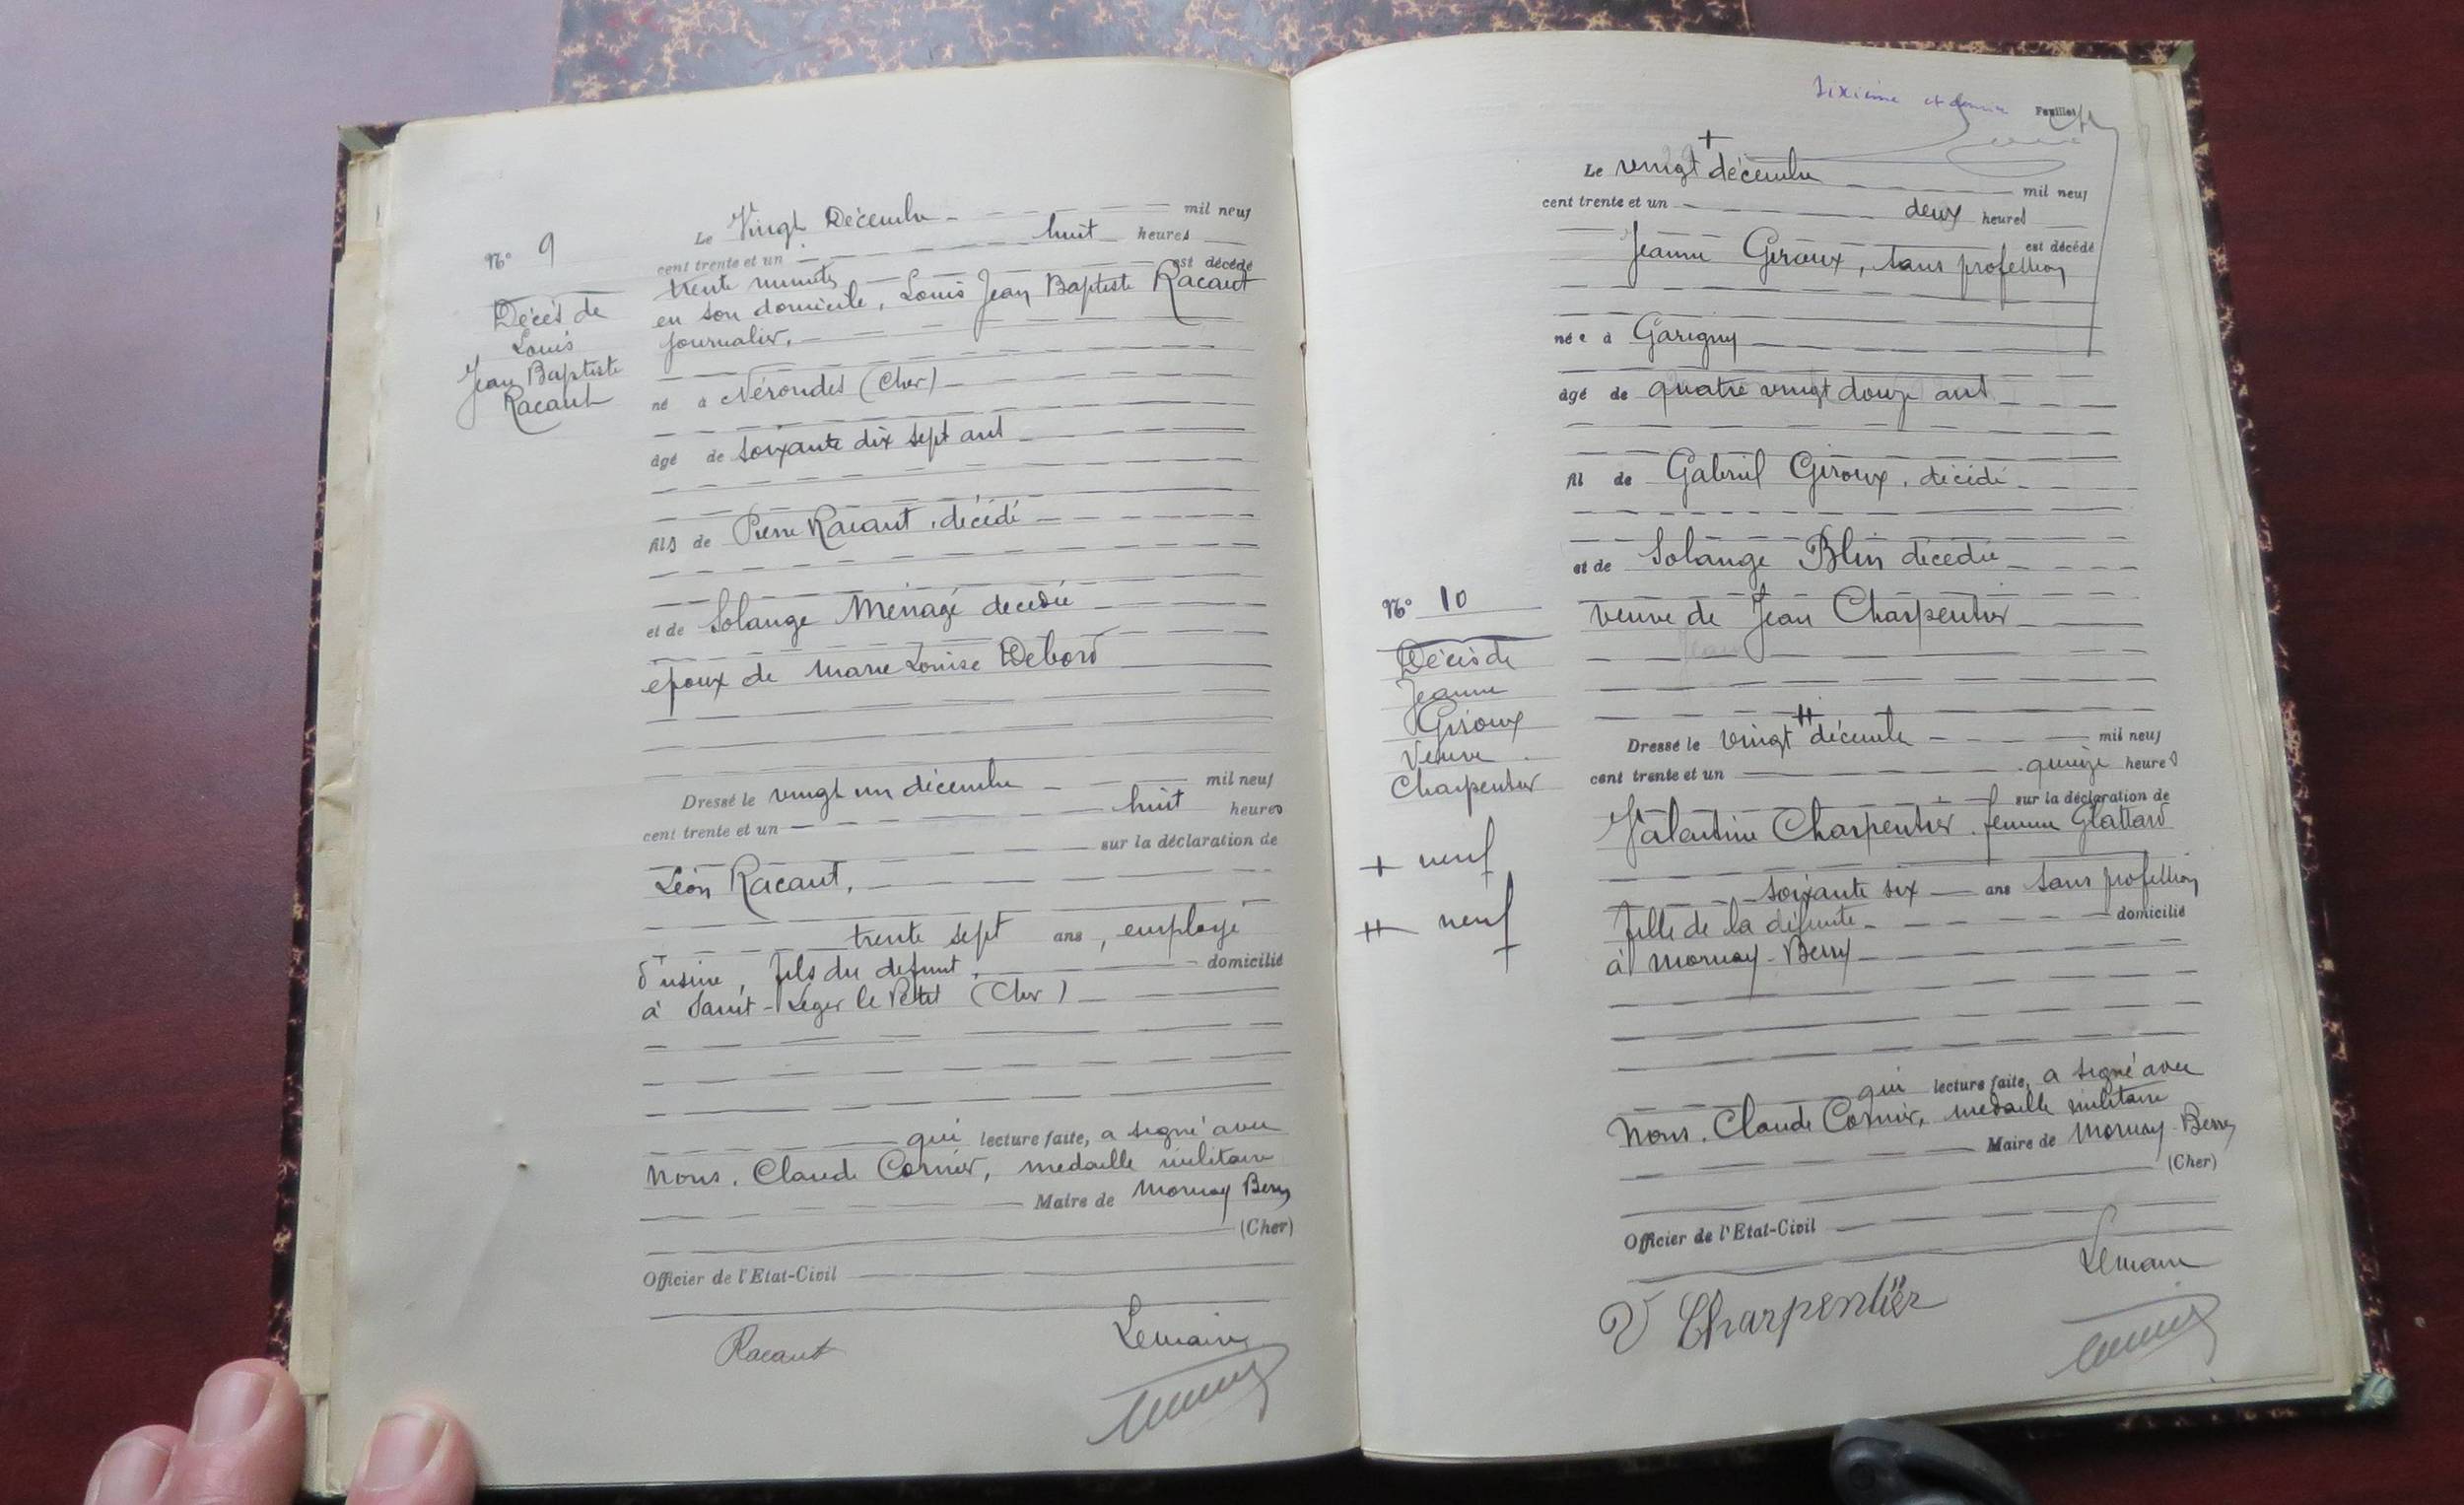 N° 9
Décès de
Louis
Jean Baptiste
Racaut
Le Vingt Décembre mil neuf
cent trente et un huit heures
trente minutes est décédé
en son domicile, Louis Jean Baptiste Racaut
journalier.
né à Nérondes (Cher)
âgé de soixante dix sept ans
fils de Pierre Racaut, décédé
et de Solange Ménagé decedée
époux de Marie Louise Debord
Dressé le vingt un décembre mil neuf
cent trente et un huit heures
sur la déclaration de
Léon Racaut,
trente sept ans, employé
d'usine, fils du defunt, domicilié
à Saint-Léger le Petit (Cher)
qui lecture faite, a signé avec
Nous, Claude Cornier, medaille militaire
Maire de Mornay Berry
(Cher)
Officier de l'Etat-Civil
Racaut
Le maire
Dixième et dernier Feuillet
+
Le vingt décembre mil neuf
cent trente et un deux heures
est décédé
Jeanne Giroux, sans profession
née à Garigny
âgé de quatre vingt douze ans
fil de Gabriel Giroux, décédé
et de Solange Blin décédée
veuve de Jean Charpentier
N° 10
Décès de
Jeanne
Giroux
Veuve
Charpentier
+ neuf
++ neuf
++
Dressé le vingt décembre mil neuf
cent trente et un quinze heures
sur la déclaration de
Valentine Charpentier femme Glattard
soixante six ans sans profession
fille de la défunte domicilié
à Mornay-Berry
qui lecture faite, a signé avec
Nous, Claude Cornier, medaille militaire
Maire de Mornay-Berry
(Cher)
Officier de l'Etat-Civil
Le maire
V Charpentier